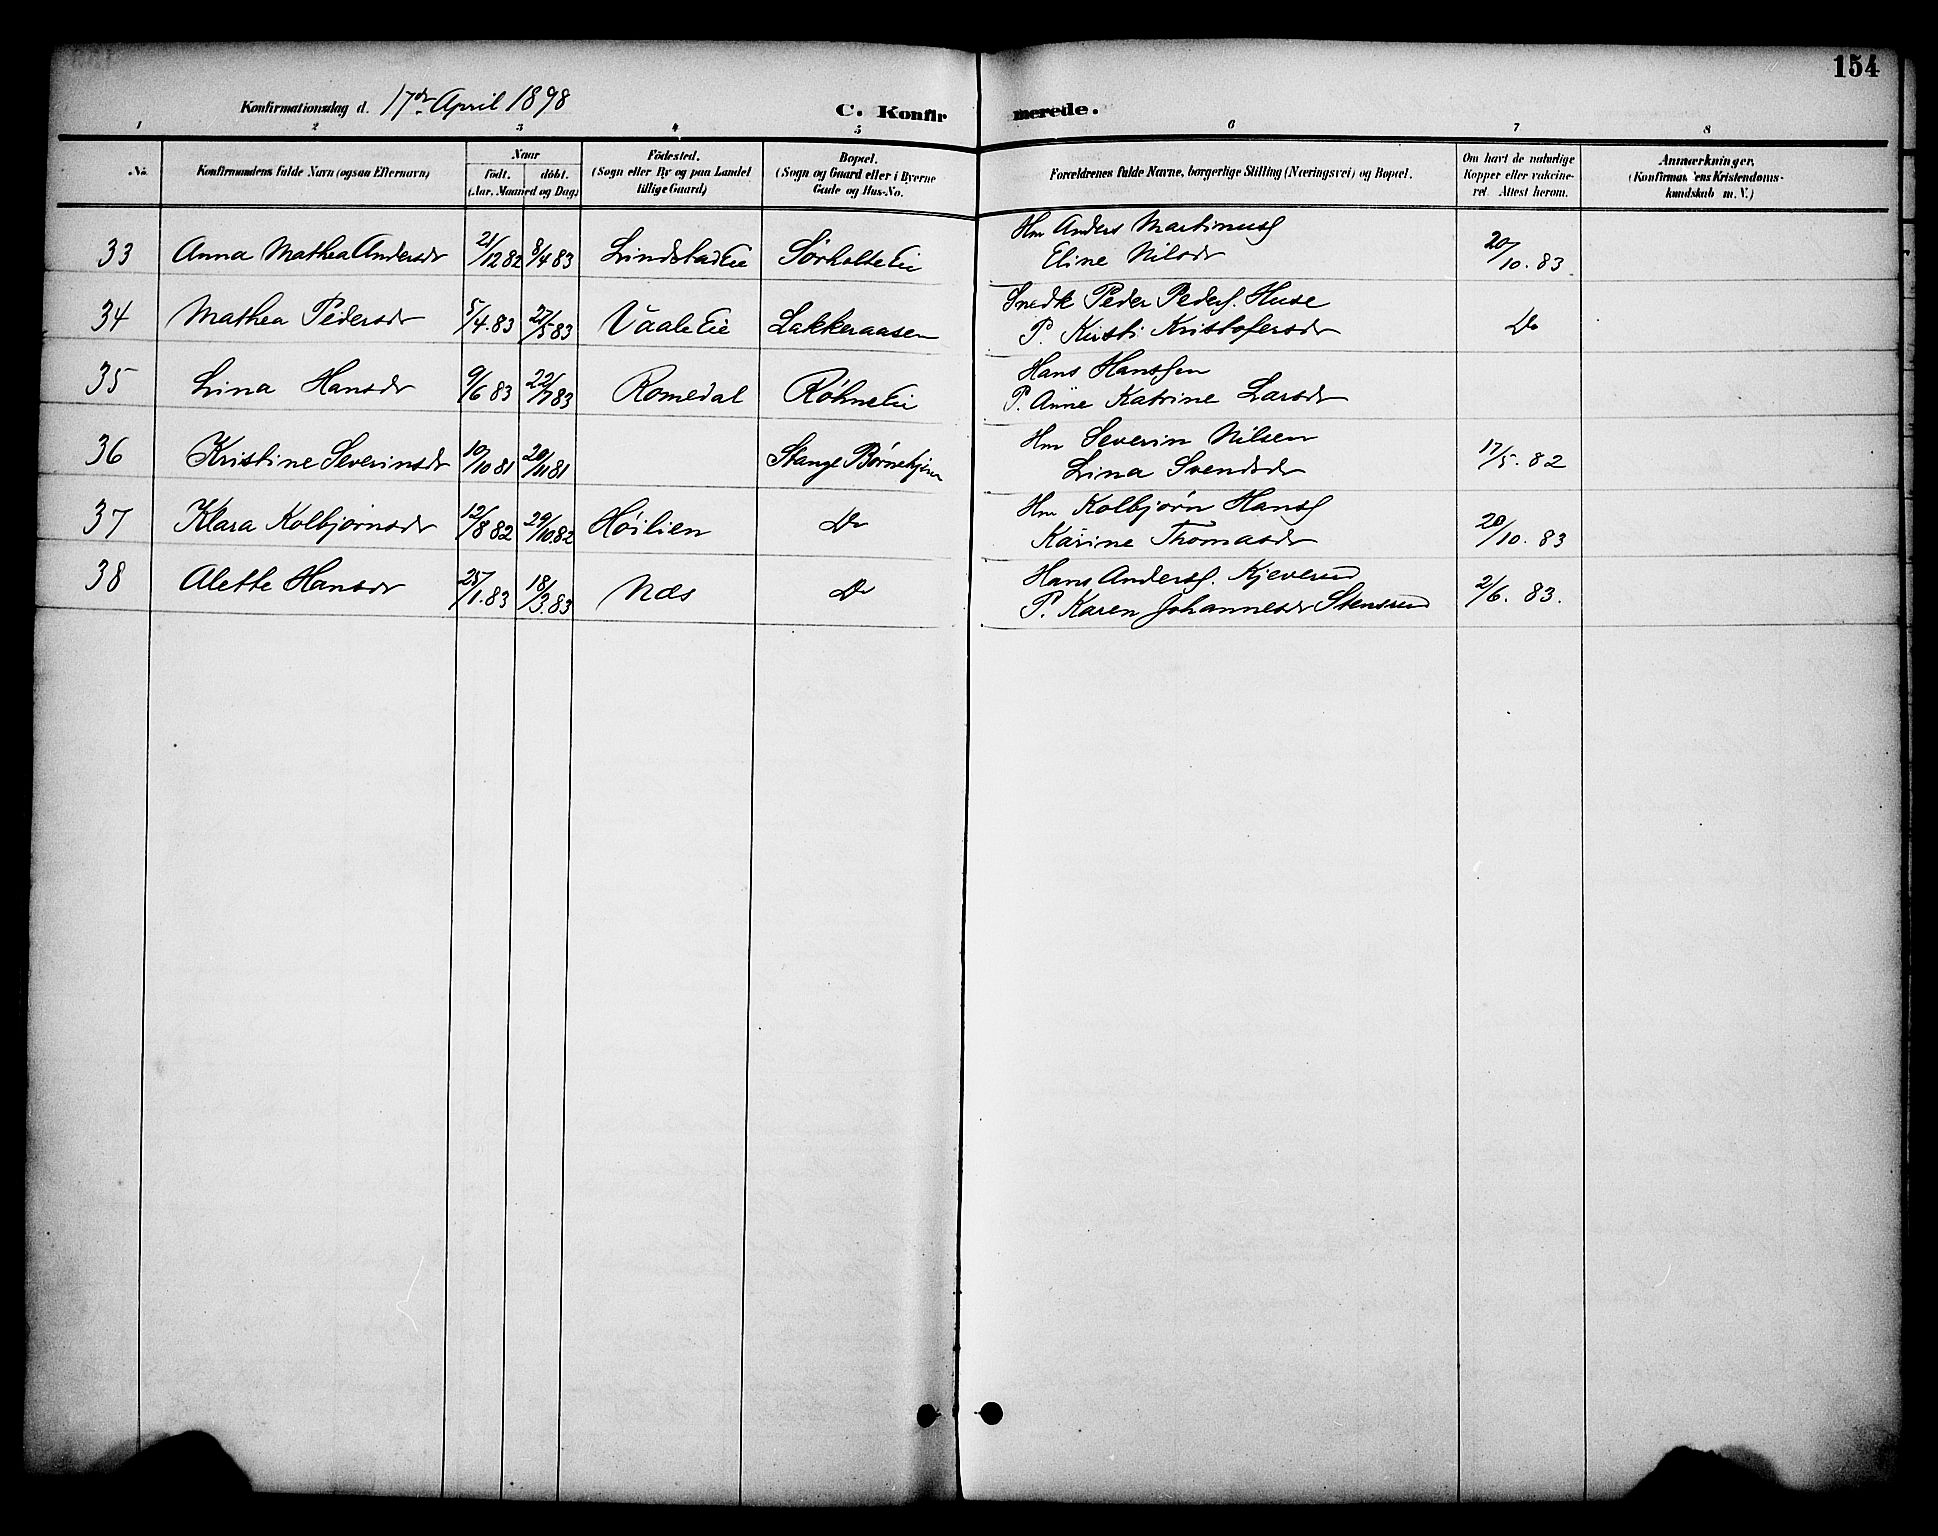 154
Konfirmationsdag d. 17de April 1898
C. Konfirmerede.
1 2 3 4 5 6 7 8
No. | Konfirmandens fulde Navn (ogsaa Efternavn) | Naar födt. döbt. (Aar, Maaned og Dag) | Födested. (Sogn eller By og paa Landet tillige Gaard) | Bopæl. (Sogn og Gaard eller i Byerne Gade og Hus-No. | Forældrenes fulde Navne, borgerlige Stilling (Næringsvei) og Bopæl. | Om havt de naturlige Kopper eller vakcineret. Attest herom. | Anmærkninger. (Konfirmandens Kristendomskundskab m. V.)
33 | Anna Mathea Andersdr | 21/12 82 | 8/4 83 | Lindstad Eie | Sørholte Eie | Hm Anders Martinus. | 20/10. 83.
Eline Nilsdr
34 | Mathea Pedersdr | 5/4. 83 | 27/5 83 | Vaale Eie | Lakkeraasen | Snedk Peder Peders. Huse | Do
P. Kirsti Kristofersdr
35 | Lina Hansdr | 9/6 83 | 22/7 83 | Romedal | Røhne Eie | Hans Hanssen
P. Anne Katrine Larsdr
36 | Kristine Severinsdr | 10/10 81 | 20/11 81 | | Stange Børnehjem | Hm Severin Nilsen | 17/5. 82
Lina Svendsdr
37 | Klara Kolbjørnsdr | 12/8 82 | 29/10. 82 | Høilien | Do | Hm Kolbjørn Hans. | 20/10. 83
Karine Thomasdr
38 | Alette Hansdr | 25/1. 83 | 18/3. 83 | Næs | Do | Hans Anders. Kjeverud | 2/6. 83.
P. Karen Johannesdr Stensrud